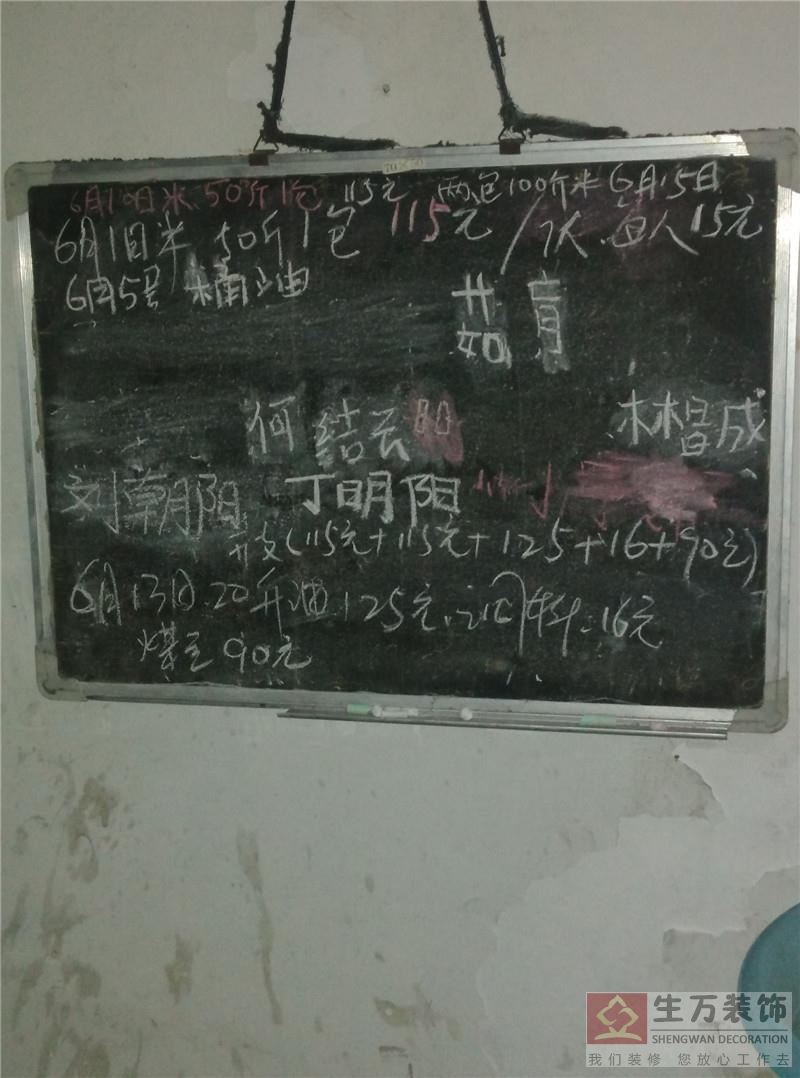 70×50
6月10日米 50斤1包 115元 两包100斤米 6月15日
6月1日米 50斤1包 115元 / 每人15元
6月5号 桶油
茹
何结云 阳 林昌成
刘朝阳 丁明阳
开支(115元+115元+125+16+90元)
6月13日.20升油.125元.调料.16元
煤气90元
生万装饰
SHENGWAN DECORATION
我们装修 您放心工作去